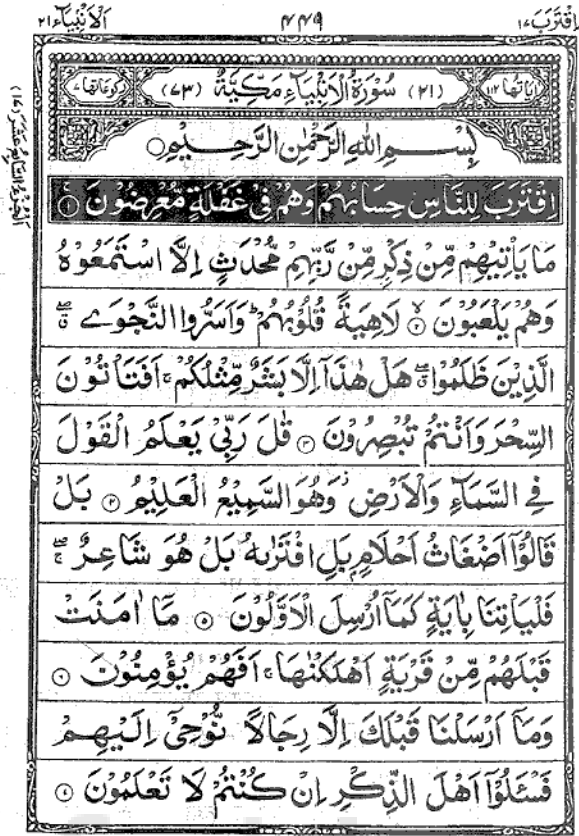 اِقْتَرَبَ ١٧ ٤٤٩ اَلْاَنْۢبِيَآء ٢١
اٰيَاتُهَا ١١٢ (٢١) سُوْرَةُ الْاَنْۢبِيَآءِ مَكِّيَّةٌ (٧٣) رُكُوْعَاتُهَا ٧
بِسْمِ اللّٰهِ الرَّحْمٰنِ الرَّحِيْمِ ○
اِقْتَرَبَ لِلنَّاسِ حِسَابُهُمْ وَهُمْ فِيْ غَفْلَةٍ مُّعْرِضُوْنَ ۚ ١
مَا يَاْتِيْهِمْ مِّنْ ذِكْرٍ مِّنْ رَّبِّهِمْ مُّحْدَثٍ اِلَّا اسْتَمَعُوْهُ
وَهُمْ يَلْعَبُوْنَ ۙ ٢ لَاهِيَةً قُلُوْبُهُمْ ؕ وَاَسَرُّوا النَّجْوَى ۖ ق
الَّذِيْنَ ظَلَمُوْا ۖ ق هَلْ هٰذَآ اِلَّا بَشَرٌ مِّثْلُكُمْ ۚ اَفَتَاْتُوْنَ
السِّحْرَ وَاَنْتُمْ تُبْصِرُوْنَ ٣ قٰلَ رَبِّيْ يَعْلَمُ الْقَوْلَ
فِي السَّمَآءِ وَالْاَرْضِ ز وَهُوَ السَّمِيْعُ الْعَلِيْمُ ٤ بَلْ
قَالُوْٓا اَضْغَاثُ اَحْلَامٍۭ بَلِ افْتَرٰىهُ بَلْ هُوَ شَاعِرٌ ۖ ج
فَلْيَاْتِنَا بِاٰيَةٍ كَمَآ اُرْسِلَ الْاَوَّلُوْنَ ٥ مَآ اٰمَنَتْ
قَبْلَهُمْ مِّنْ قَرْيَةٍ اَهْلَكْنٰهَا ۚ اَفَهُمْ يُؤْمِنُوْنَ ٦
وَمَآ اَرْسَلْنَا قَبْلَكَ اِلَّا رِجَالًا نُّوْحِيْٓ اِلَيْهِمْ
فَسْـَٔلُوْٓا اَهْلَ الذِّكْرِ اِنْ كُنْتُمْ لَا تَعْلَمُوْنَ ٧